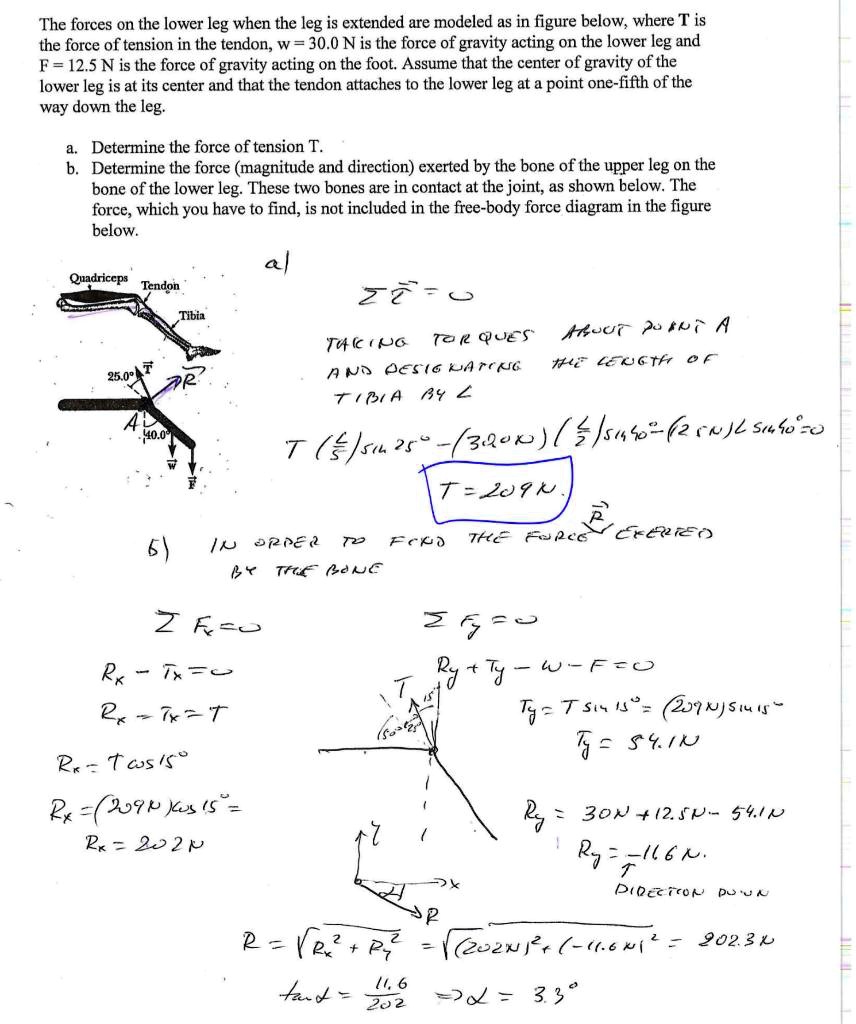 The forces on the lower leg when the leg is extended are modeled as in figure below, where T is
the force of tension in the tendon, w = 30.0 N is the force of gravity acting on the lower leg and
F = 12.5 N is the force of gravity acting on the foot. Assume that the center of gravity of the
lower leg is at its center and that the tendon attaches to the lower leg at a point one-fifth of the
way down the leg.
a. Determine the force of tension T.
b. Determine the force (magnitude and direction) exerted by the bone of the upper leg on the
bone of the lower leg. These two bones are in contact at the joint, as shown below. The
force, which you have to find, is not included in the free-body force diagram in the figure
below.
a)
Quadriceps
Tendon
Tibia
Σ τ⃗ = 0
TAKING TORQUES ABOUT POINT A
AND DESIGNATING THE LENGTH OF
TIBIA BY L
25.0° T⃗
R⃗
A
40.0°
w⃗
F⃗
T (L/5) sin 25° - (30.0N) (L/2) sin 40° - (12.5N) L sin 40° = 0
T = 209 N.
b) IN ORDER TO FIND THE FORCE R⃗ EXERTED
BY THE BONE
Σ Fx = 0
Σ Fy = 0
Rx - Tx = 0
Ry + Ty - W - F = 0
Rx = Tx = T
Ty = T sin 15° = (209N) sin 15°
Ty = 54.1N
Rx = T cos 15°
T
15°
Rx = (209N) cos 15° =
Rx = 202N
Ry = 30N + 12.5N - 54.1N
Ry = -11.6N.
DIRECTION DOWN
y
x
α
R
R = √Rx² + Ry² = √(202N)² + (-11.6N)² = 202.3N
tan α = 11.6/202 => α = 3.3°